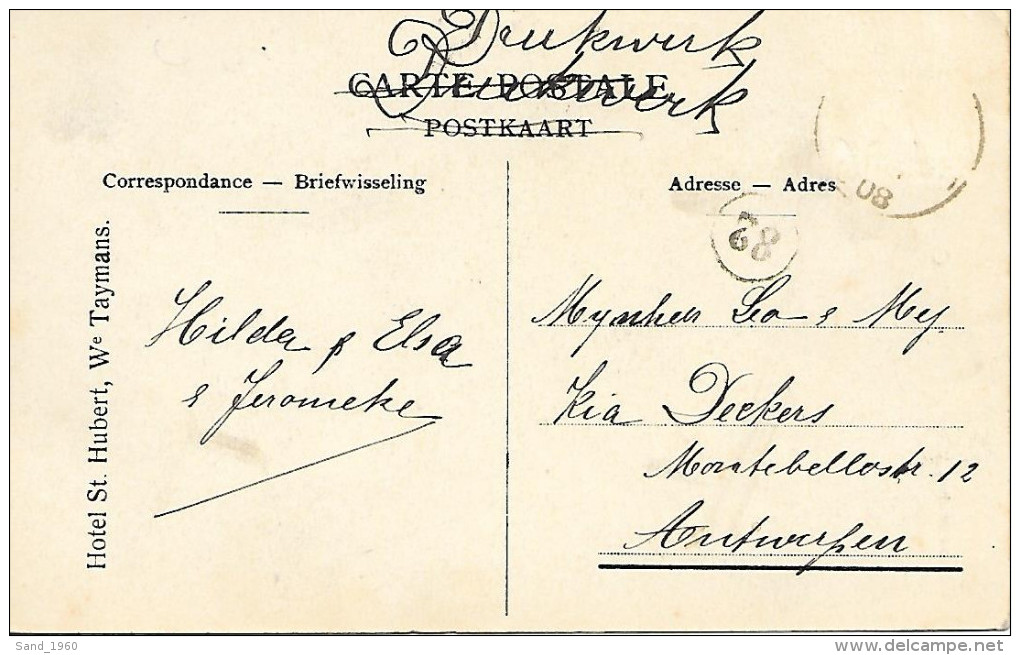 Drukwerk
CARTE POSTALE
Drukwerk
POSTKAART
Correspondance — Briefwisseling
Adresse — Adres
08
68
Hotel St. Hubert, We Taymans.
Hilda & Elsa
& Jeromeke
Mynheer Leo & Mej
Kia Deckers
Montebellostr. 12
Antwerpen
Sand_1960
http://www.delcampe.net